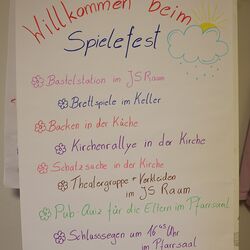 Willkommen beim
Spielefest
Bastelstation im JS Raum
Brettspiele im Keller
Backen in der Küche
Kirchenrallye in der Kirche
Schatzsuche in der Kirche
Theatergruppe + Verkleiden
im JS Raum
Pub-Quiz für die Eltern im Pfarrsaal
Schlusssegen um 16:45 Uhr
im Pfarrsaal